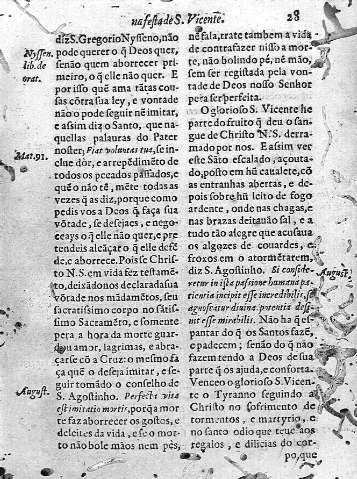 na festa de S. Vicente. 28
diz S. Gregorio Nysseno, não
Nyssen.
lib. de
orat.
pode querer o q̃ Deos quer,
senão quem aborrecer pri-
meiro, o q̃ elle não quer. E
por isso quẽ ama tãtas cou-
sas cõtra sua ley, e vontade
não o pode seguir nẽ imitar,
e assim diz o Santo, que na-
quellas palauras do Pater
noster, Fiat voluntas tua, se in-
Mat. 91.
clue dòr, e arrepẽdimẽto de
todos os peccados passados, e
que o não tẽ, mẽte todas as
vezes q̃ as diz, porque como
pedis vos a Deos q̃ faça sua
võtade, se desejaes, e nego-
ceays o q̃ elle não quer, e pre
tendeis alcãçar o q̃ elle defẽ
de, e aborrece. Pois se Chris-
to N. S. em vida fez testamẽ-
to, deixãdonos declarada sua
võtade nos mãdamẽtos, seu
sacratissimo corpo no sãtis-
simo Sacramẽto, e somente
pera a hora da morte guar-
dou amor, lagrimas, e abra-
çarse cõ a Cruz: o mesmo fa
ça quẽ o deseja imitar, e se
guir tomãdo o conselho de
August.
S. Agostinho. Perfecta vita
est imitatio mortis, porq̃ a mor
te faz aborrecer os gostos, e
deleites da vida, e se o mor-
to não bole mãos nem pès,
nẽ fala, trate tambem a vida
de contrafazer nisso a mor-
te, não bolindo pè, nẽ mão,
sem ser registada pela von-
tade de Deos nosso Senhor
pera ser perfeita.
O glorioso S. Vicente he
parte do fruito q̃ deu o san-
gue de Christo N. S. derra-
mado por nos. E assim ver
este Sãto escalado, açouta-
do, posto em hũ catalete, cõ
as entranhas abertas, e de-
pois sobre hũ leito de fogo
ardente, onde nas chagas, e
nas brazas deitauão sal, e a
tudo tão alegre que acusaua
os algozes de couardes, e
froxos em o atormẽtarem,
diz S. Agostinho. Si conside-
August.
retur in ista passione humana pa-
tientia incipit esse incredibilis, si
agnoscatur diuina potentia desi-
nit esse mirabilis. Não ha q̃ es-
pantar do q̃ os Santos fazẽ,
e padecem; senão do q̃ não
fazem tendo a Deos de sua
parte q̃ os ajuda, e conforta.
Venceo o glorioso S. Vicen-
te o Tyranno seguindo a
Christo no sofrimento de
tormentos, e martyrio, e
no santo odio que teue aos
regalos, e dilicias do cor-
po, que